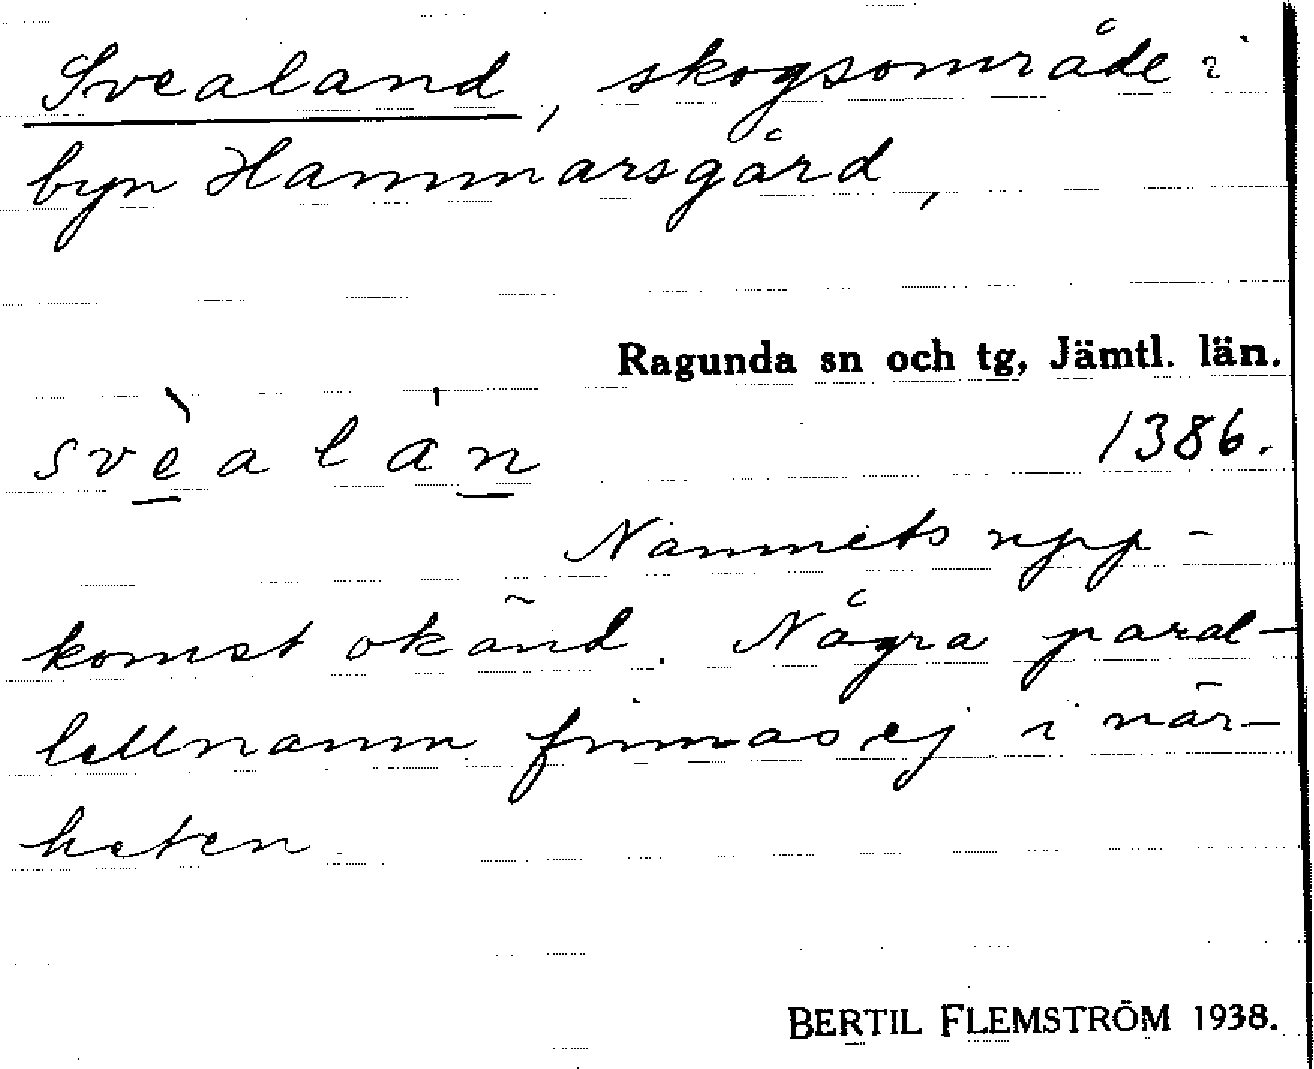 Svealand, skogsområde i
byn Hammarsgård,
Ragunda sn och tg, Jämtl. län.
svè̱a l áṉ
1386.
Namnets upp-
komst okänd. Några paral-
lellnamn finnas ej i när-
heten
BERTIL FLEMSTRÖM 1938.